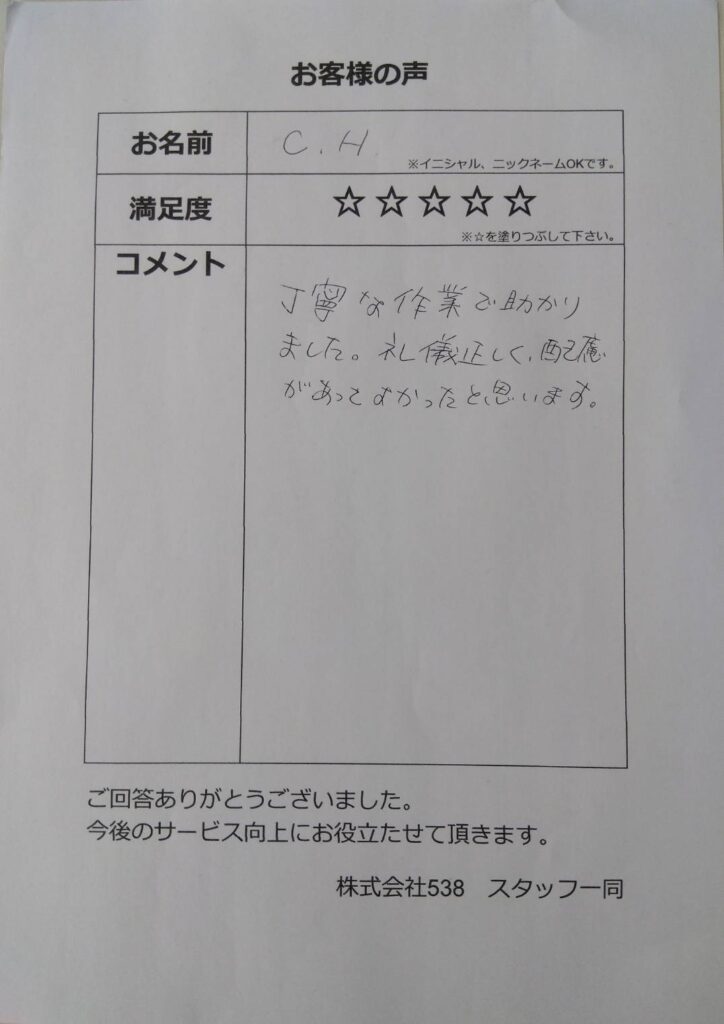 お客様の声
お名前
C.H.
※イニシャル、ニックネームOKです。
満足度
☆☆☆☆☆
※☆を塗りつぶして下さい。
コメント
丁寧な作業で助かり
ました。礼儀正しく、配慮
があってよかったと思います。
ご回答ありがとうございました。
今後のサービス向上にお役立たせて頂きます。
株式会社538　スタッフ一同